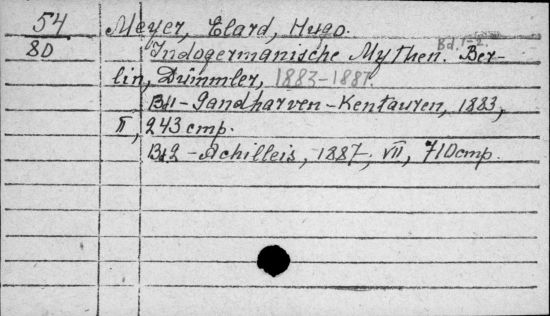 54 Meyer, Elard, Hugo.
80 Indogermanische Mythen. Bd. 1-2. Ber-
lin, Dümmler, 1883-1887.
Bd1 - Gandharven-Kentauren, 1883,
II, 243 стр.
Bd2 - Achilleis, 1887, VII, 710 стр.